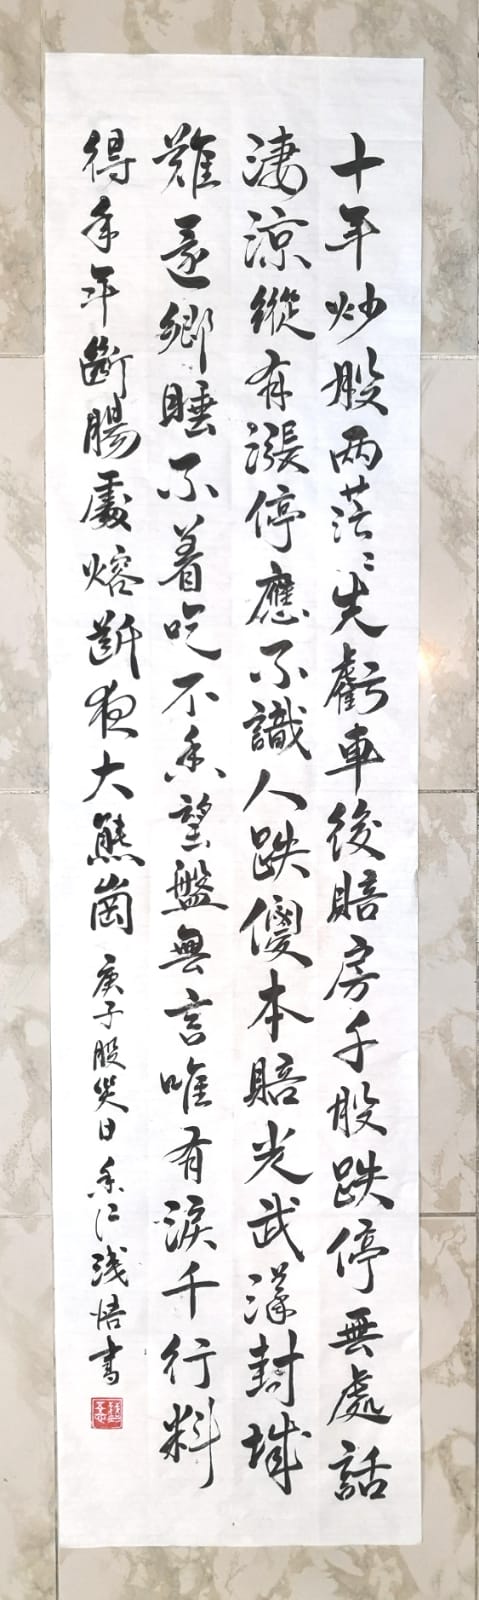 十年炒股两茫〻先虧車後賠房千股跌停無處話
淒涼縱有漲停應不識人跌傻本賠光武漢封城
難還鄉睡不着吃不香望盤無言唯有淚千行料
得年年斷腸處熔斷夜大熊崗 庚子股災日 香江淺悟書